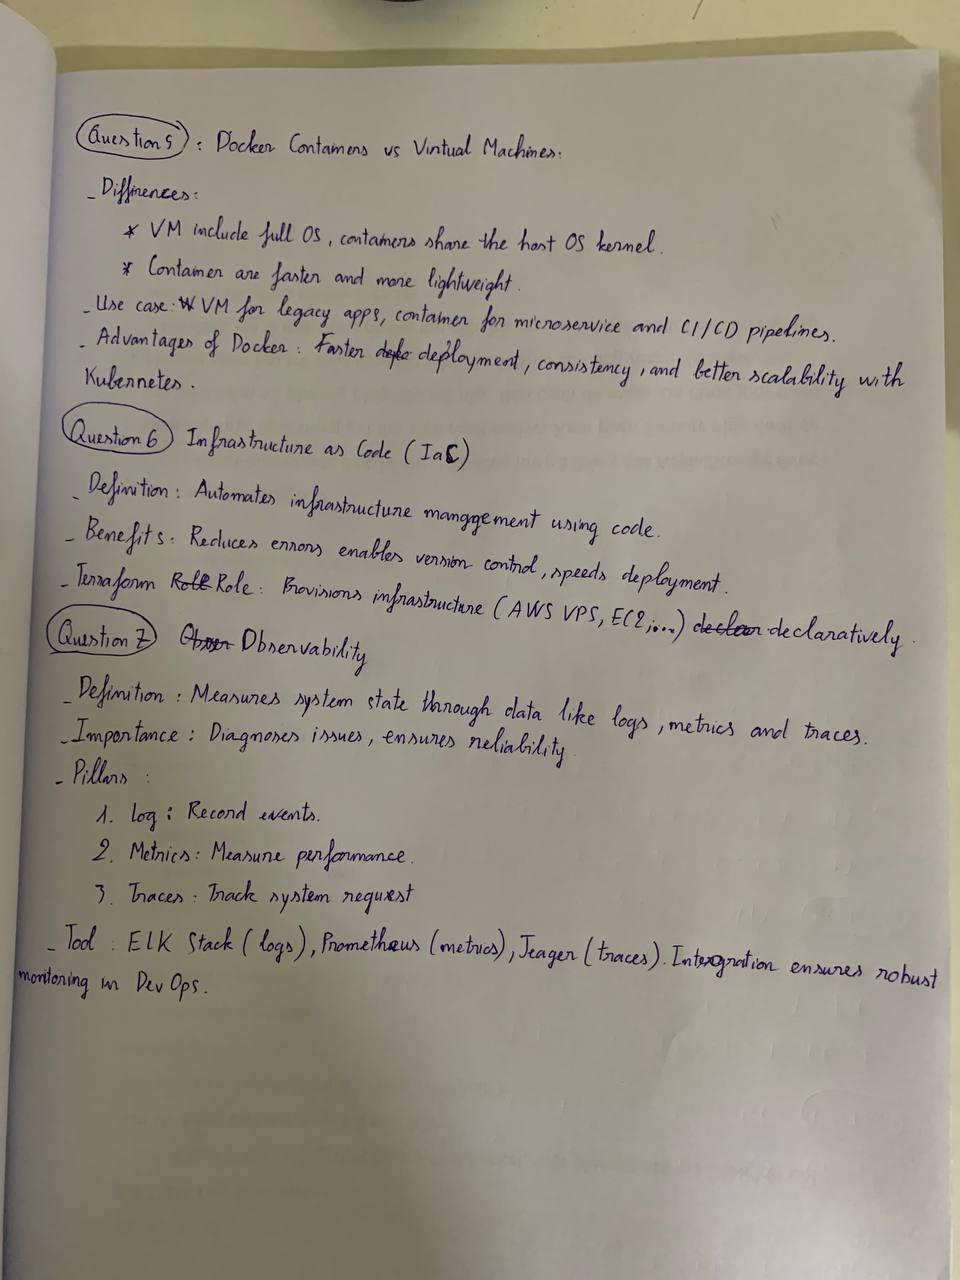 Question 5 : Docker Containers vs Virtual Machines:
- Diffirences:
* VM include full OS, containers share the host OS kernel.
* Container are faster and more lightweight.
- Use case: VM for legacy apps, container for microservice and CI/CD pipelines.
- Advantages of Docker : Faster deployment, consistency, and better scalability with
Kubernetes.
Question 6 Infrastructure as Code (IaC)
- Definition : Automates infrastructure management using code.
- Benefits : Reduces errors enables version control, speeds deployment.
- Terraform Role : Provisions infrastructure (AWS VPS, EC2,...) declaratively.
Question 7 Observability
- Definition : Measures system state through data like logs, metrics and traces.
- Importance : Diagnoses issues, ensures reliability.
- Pillars :
1. Log : Record events.
2. Metrics : Measure performance.
3. Traces : Track system request
- Tool : ELK Stack (logs), Prometheus (metrics), Jeager (traces). Intergration ensures robust
monitoring in DevOps.